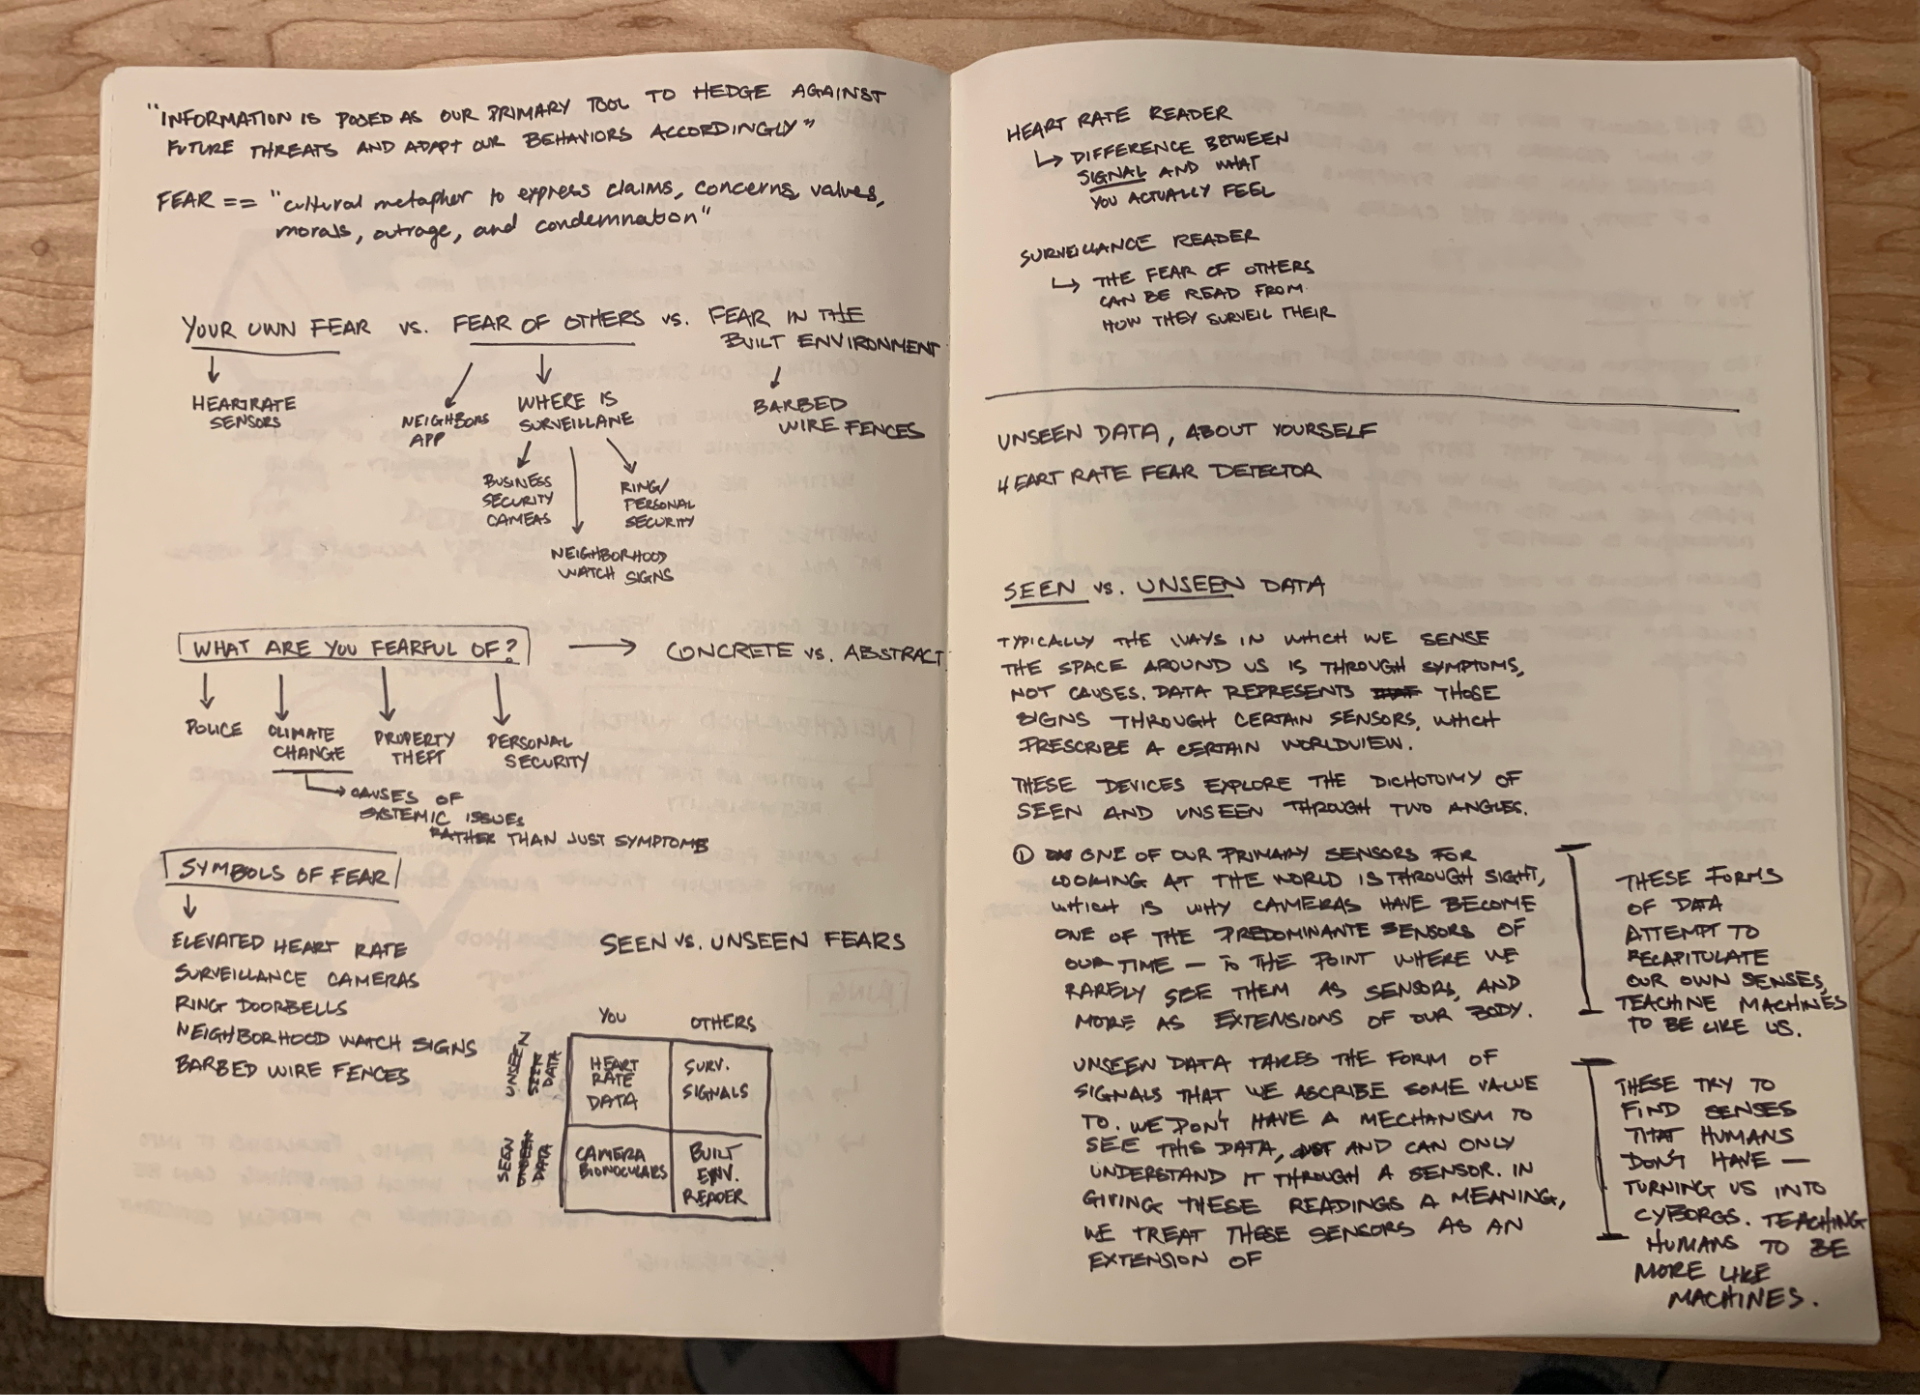 "INFORMATION IS POSED AS OUR PRIMARY TOOL TO HEDGE AGAINST
FUTURE THREATS AND ADAPT OUR BEHAVIORS ACCORDINGLY"
FEAR == "cultural metapher to express claims, concerns, values,
morals, outrage, and condemnation"
YOUR OWN FEAR vs. FEAR OF OTHERS vs. FEAR IN THE
BUILT ENVIRONMENT
HEARTRATE
SENSORS
NEIGHBORS
APP
WHERE IS
SURVEILLANE
BARBED
WIRE FENCES
BUSINESS
SECURITY
CAMEAS
RING/
PERSONAL
SECURITY
NEIGHBORHOOD
WATCH SIGNS
WHAT ARE YOU FEARFUL OF? → CONCRETE vs. ABSTRACT
POLICE
CLIMATE
CHANGE
PROPERTY
THEFT
PERSONAL
SECURITY
CAUSES OF
SYSTEMIC ISSUES
RATHER THAN JUST SYMPTOMS
SYMBOLS OF FEAR
ELEVATED HEART RATE
SURVEILLANCE CAMERAS
RING DOORBELLS
NEIGHBORHOOD WATCH SIGNS
BARBED WIRE FENCES
SEEN vs. UNSEEN FEARS
YOU OTHERS
UNSEEN
DATA
HEART
RATE
DATA
SURV.
SIGNALS
SEEN
DATA
CAMERA
BIONOCULARS
BUILT
ENV.
READER
HEART RATE READER
↳ DIFFERENCE BETWEEN
SIGNAL AND WHAT
YOU ACTUALLY FEEL
SURVEILLANCE READER
↳ THE FEAR OF OTHERS
CAN BE READ FROM
HOW THEY SURVEIL THEIR
UNSEEN DATA, ABOUT YOURSELF
HEART RATE FEAR DETECTOR
SEEN vs. UNSEEN DATA
TYPICALLY THE WAYS IN WHICH WE SENSE
THE SPACE AROUND US IS THROUGH SYMPTOMS,
NOT CAUSES. DATA REPRESENTS THOSE
SIGNS THROUGH CERTAIN SENSORS, WHICH
PRESCRIBE A CERTAIN WORLDVIEW.
THESE DEVICES EXPLORE THE DICHOTOMY OF
SEEN AND UNSEEN THROUGH TWO ANGLES.
① ONE OF OUR PRIMARY SENSORS FOR
LOOKING AT THE WORLD IS THROUGH SIGHT,
WHICH IS WHY CAMERAS HAVE BECOME
ONE OF THE PREDOMINANTE SENSORS OF
OUR TIME — TO THE POINT WHERE WE
RARELY SEE THEM AS SENSORS, AND
MORE AS EXTENSIONS OF OUR BODY.
THESE FORMS
OF DATA
ATTEMPT TO
RECAPITULATE
OUR OWN SENSES,
TEACHINE MACHINES
TO BE LIKE US.
UNSEEN DATA TAKES THE FORM OF
SIGNALS THAT WE ASCRIBE SOME VALUE
TO. WE DON'T HAVE A MECHANISM TO
SEE THIS DATA, AND CAN ONLY
UNDERSTAND IT THROUGH A SENSOR. IN
GIVING THESE READINGS A MEANING,
WE TREAT THESE SENSORS AS AN
EXTENSION OF
THESE TRY TO
FIND SENSES
THAT HUMANS
DON'T HAVE —
TURNING US INTO
CYBORGS. TEACHING
HUMANS TO BE
MORE LIKE
MACHINES.